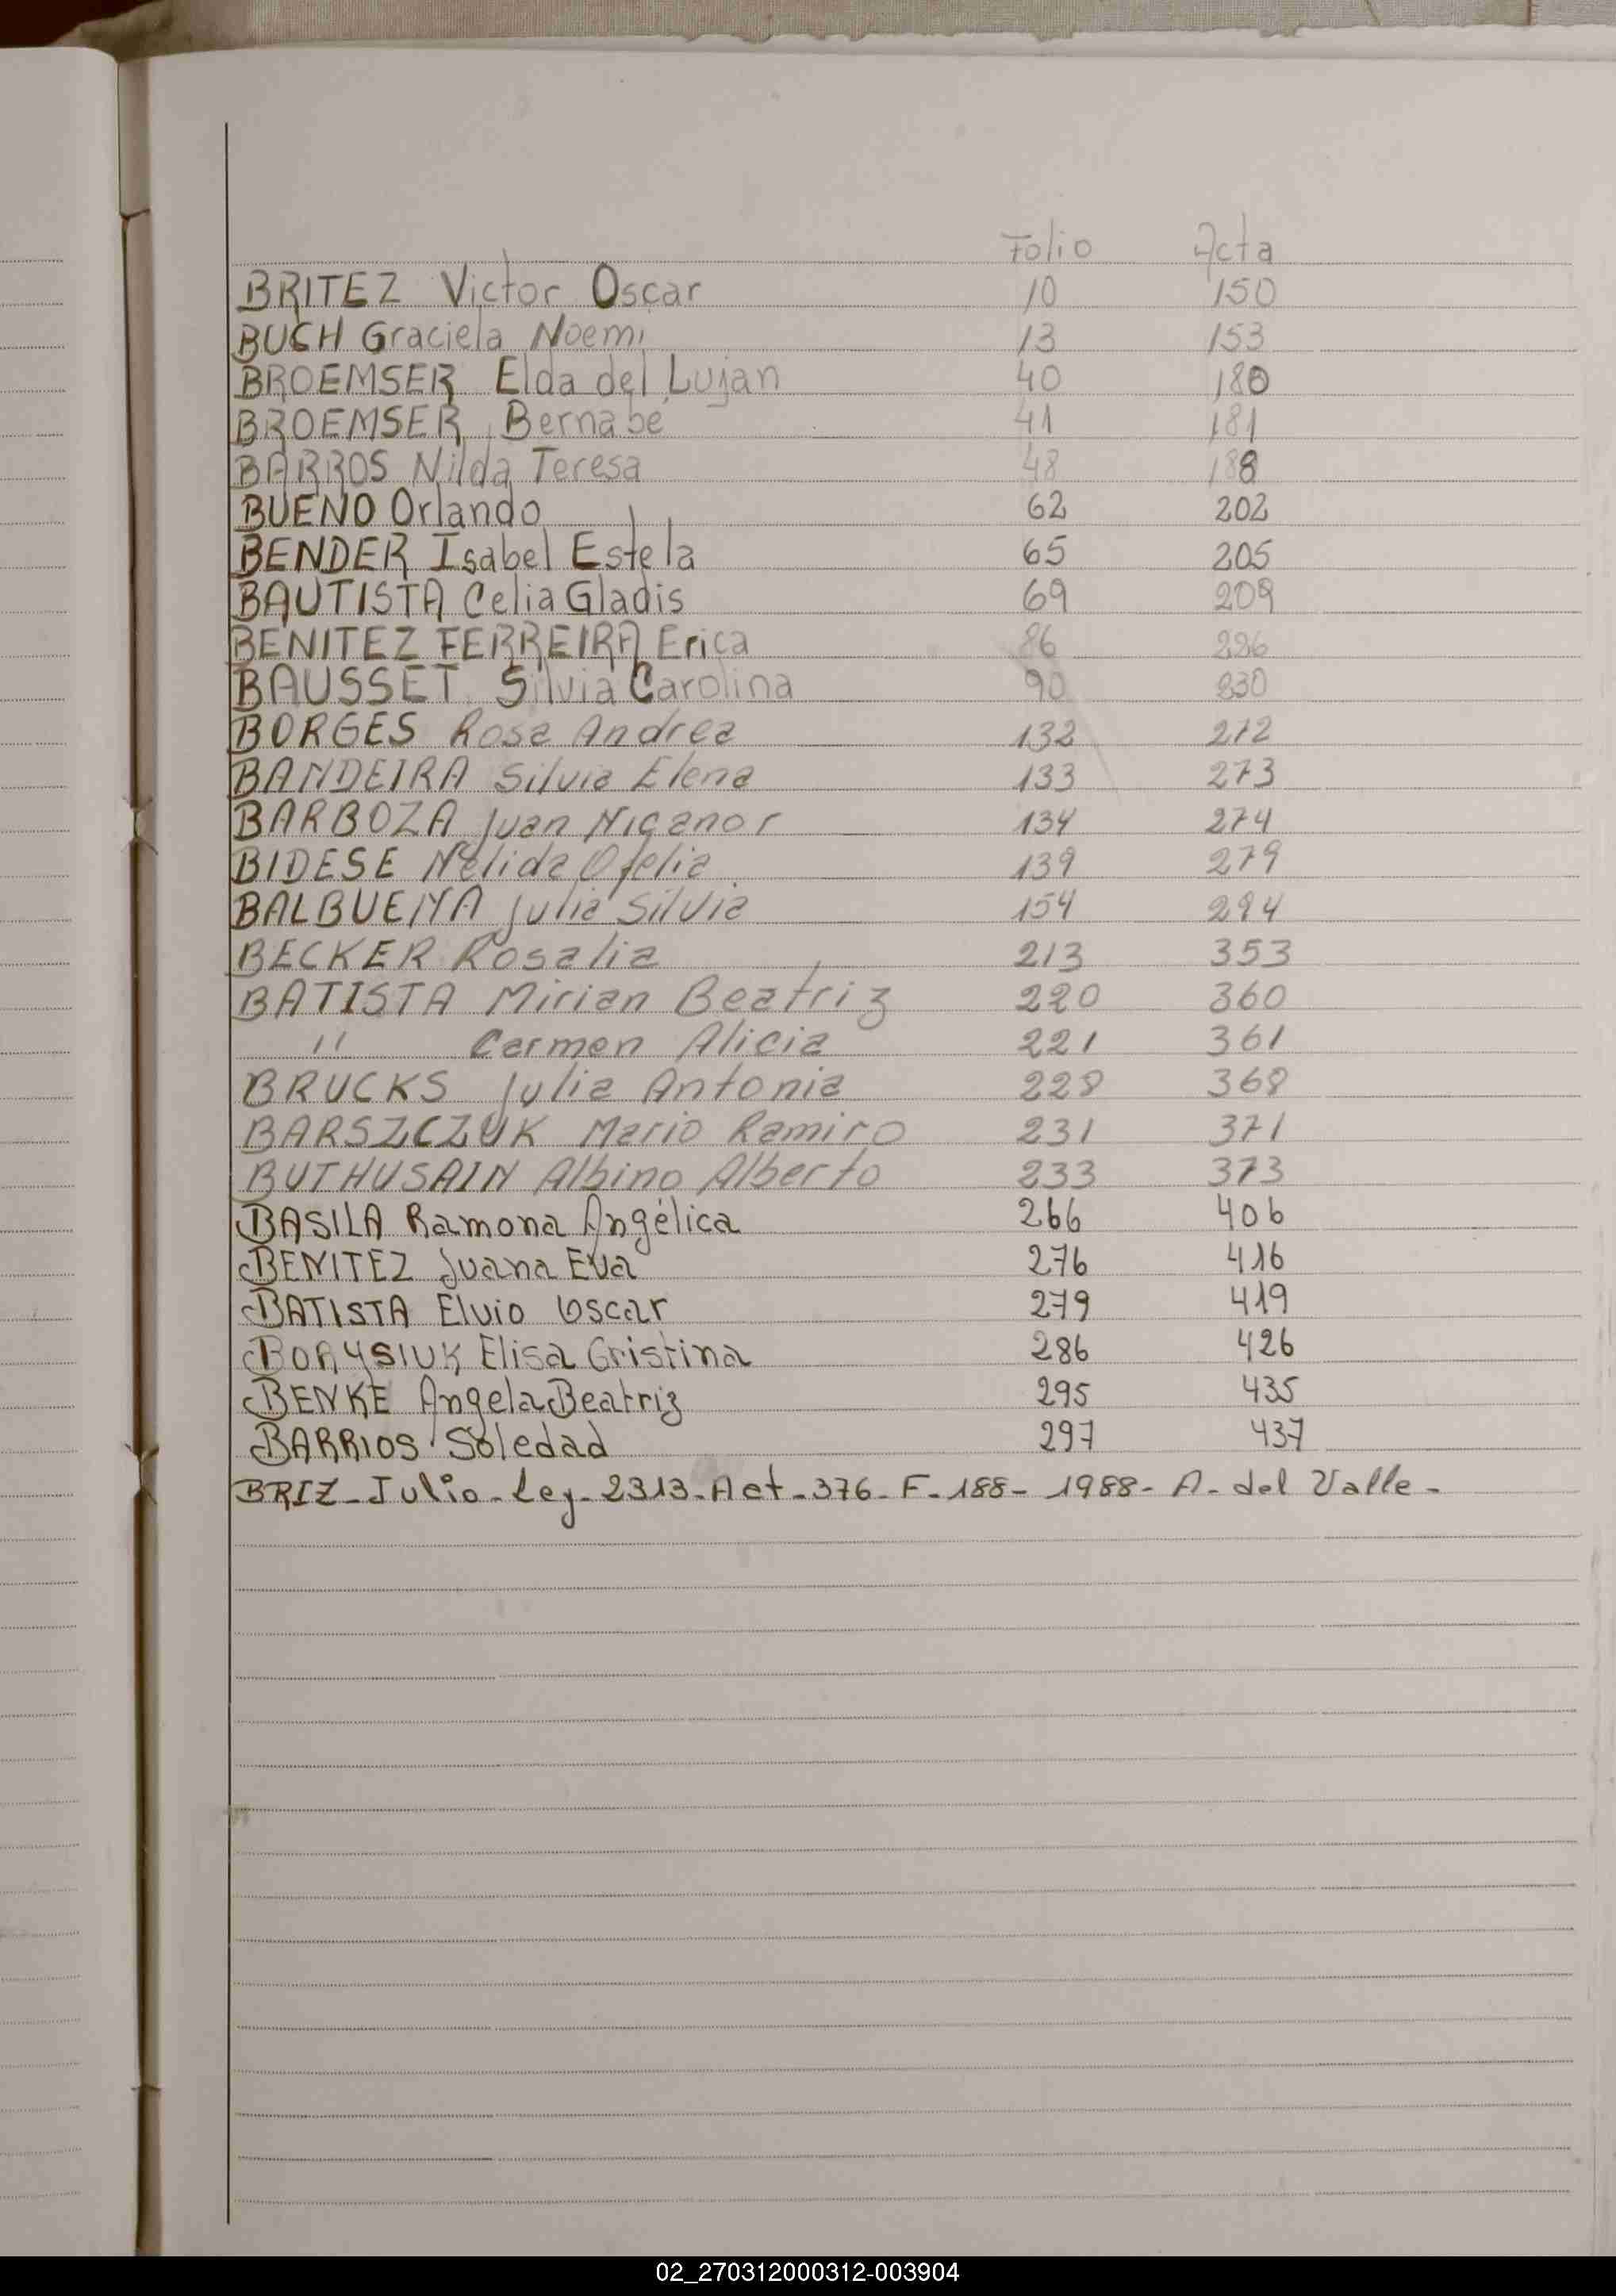 Folio Acta
BRITEZ Victor Oscar 10 150
BUCH Graciela Noemi 13 153
BROEMSER Elda del Lujan 40 180
BROEMSER Bernabe 41 181
BARROS Nilda Teresa 48 188
BUENO Orlando 62 202
BENDER Isabel Estela 65 205
BAUTISTA Celia Gladis 69 209
BENITEZ FERREIRA Erica 86 226
BAUSSET Silvia Carolina 90 230
BORGES Rosa Andrea 132 272
BANDEIRA Silvia Elena 133 273
BARBOZA Juan Nicanor 134 274
BIDESE Nélida Ofelia 139 279
BALBUENA Julia Silvia 154 294
BECKER Rosalia 213 353
BATISTA Mirian Beatriz 220 360
" Carmen Alicia 221 361
BRUCKS Julia Antonia 228 368
BARSZCZUK Mario Ramiro 231 371
BUTHUSAIN Albino Alberto 233 373
BASILA Ramona Angélica 266 406
BENITEZ Juana Eva 276 416
BATISTA Elvio Oscar 279 419
BORYSIUK Elisa Cristina 286 426
BENKE Angela Beatriz 295 435
BARRIOS Soledad 297 437
BRIZ-Julio-Ley-2313-Act-376-F-188-1988-A-del Valle-
02_270312000312-003904